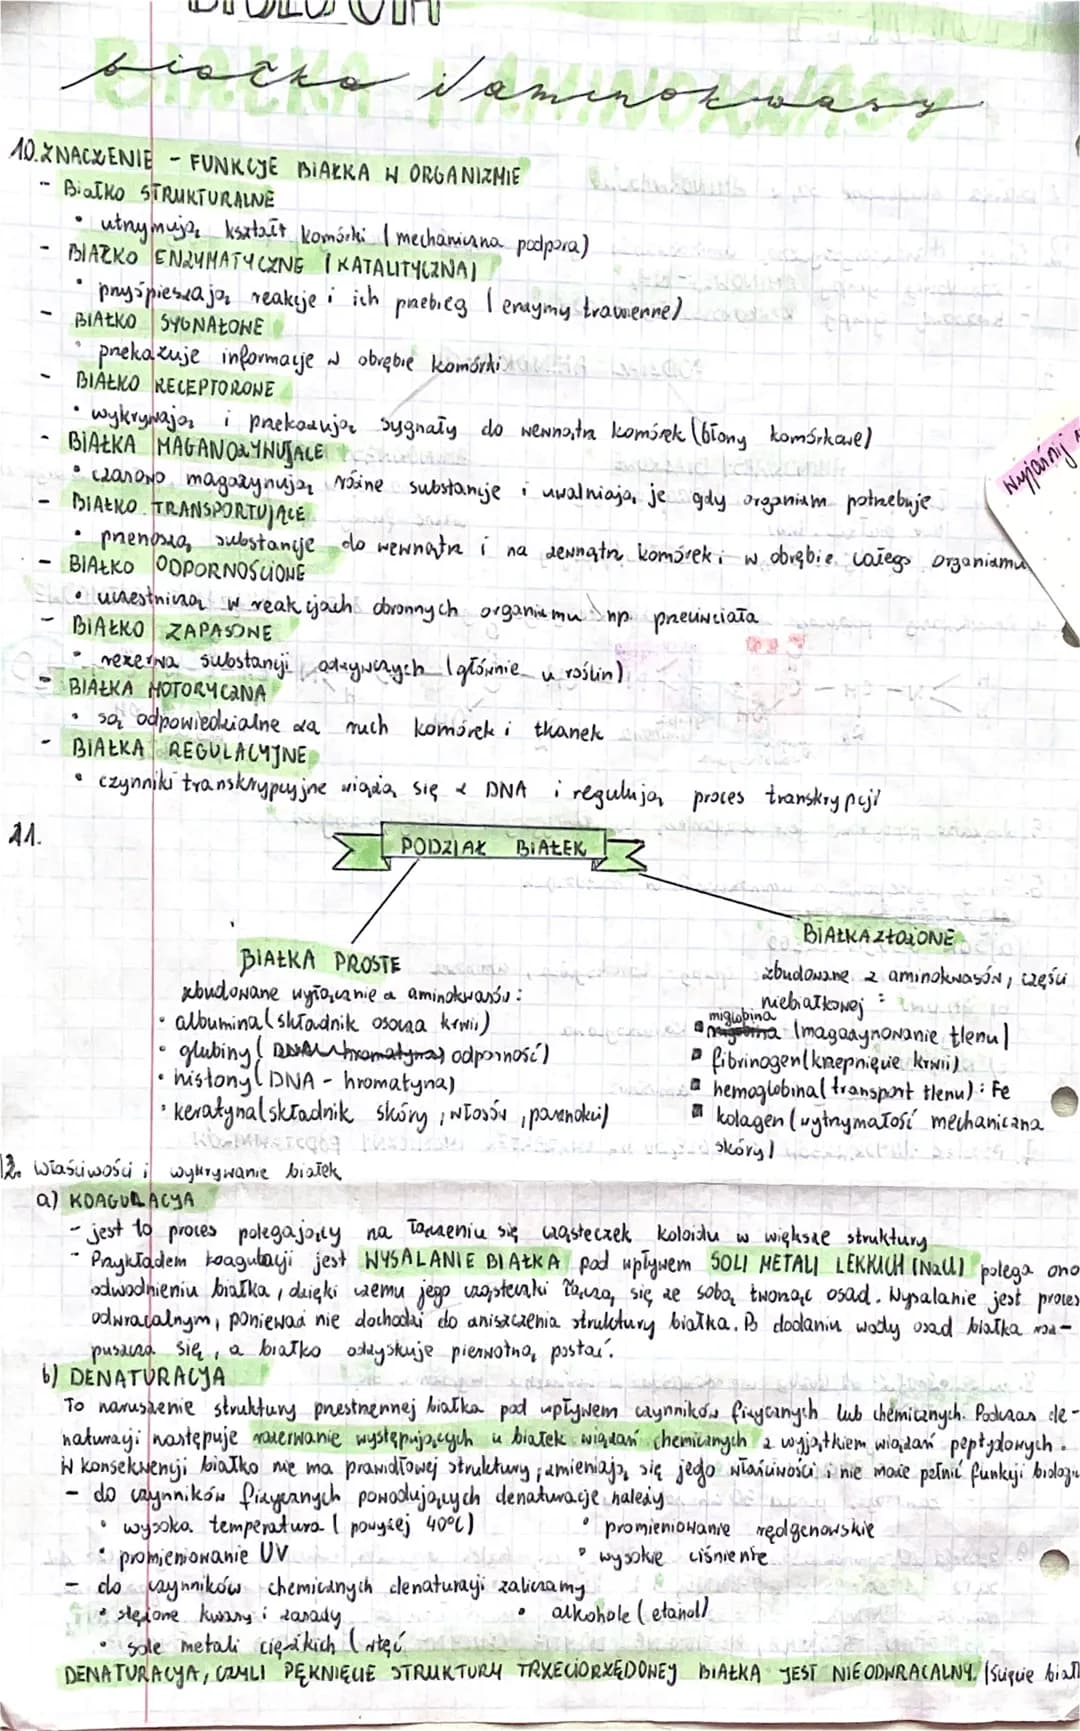 BIOLOGIA
białka i aminokwasy
10. ZNACZENIE - FUNKCJE BIAŁKA W ORGANIZMIE
- BiaŁKO STRUKTURALNE
• utrzymują kształt komórki (mechaniczna podpora)
- BIAŁKO ENZYMATYCZNE (KATALITYCZNA)
• przyśpieszają reakcje i ich przebieg (enzymy trawienne)
- BIAŁKO SYGNAŁOWE
• przekazuje informacje w obrębie komórki
- BIAŁKO RECEPTOROWE
• wykrywają i przekazują sygnały do wewnątrz komórek (błony komórkowe)
- BIAŁKA MAGANOZYNUJĄCE
• czasowo magazynują różne substancje i uwalniają je gdy organizm potrzebuje
- BIAŁKO TRANSPORTUJĄCE
• przenoszą substancje do wewnątrz i na zewnątrz komórek i w obrębie całego organizmu
- BIAŁKO ODPORNOŚCIOWE
• uczestniczą w reakcjach obronnych organizmu np. przeciwciała
- BIAŁKO ZAPASOWE
• rezerwa substancji odżywczych (głównie u roślin)
- BIAŁKA MOTORYCZNA
• są odpowiedzialne za ruch komórek i tkanek
- BIAŁKA REGULACYJNE
• czynniki transkrypcyjne wiążą się z DNA i regulują proces transkrypcji
Wyjaśnij
11.
PODZIAŁ BIAŁEK
BIAŁKA PROSTE
zbudowane wyłącznie z aminokwasów:
• albumina (składnik osocza krwi)
• glubiny (odporność)
• histony (DNA - hromatyna)
• keratyna (składnik skóry, włosów, paznokci)
BIAŁKA ZŁOŻONE
zbudowane z aminokwasów, części
niebiałkowej:
▫ miglobina (magazynowanie tlenu)
▫ fibrinogen (krzepnięcie krwi)
▫ hemoglobina (transport tlenu): Fe
▫ kolagen (wytrzymałość mechaniczna
skóry)
12. Właściwości i wykrywanie białek
a) KOAGULACJA
- jest to proces polegający na łączeniu się cząsteczek koloidu w większe struktury
- Przykładem koagulacji jest WYSALANIE BIAŁKA pod wpływem SOLI METALI LEKKICH (NaCl) polega ono
odwodnieniu białka, dzięki czemu jego cząsteczki łączą się ze sobą tworząc osad. Wysalanie jest proces
odwracalnym, ponieważ nie dochodzi do zniszczenia struktury białka. Po dodaniu wody osad białka roz-
puszcza się, a białko odzyskuje pierwotną postać.
b) DENATURACJA
To naruszenie struktury przestrzennej białka pod wpływem czynników fizycznych lub chemicznych. Podczas de-
naturacji następuje rozerwanie występujących u białek wiązań chemicznych z wyjątkiem wiązań peptydowych.
W konsekwencji białko nie ma prawidłowej struktury, zmieniają się jego właściwości i nie może pełnić funkcji biologi
- do czynników fizycznych powodujących denaturacje należy
• wysoka temperatura (powyżej 40°C)
• promieniowanie rędgenowskie
• promieniowanie UV
• wysokie ciśnienie
- do czynników chemicznych denaturacji zaliczamy
• stężone kwasy i zasady
• alkohole (etanol)
• sole metali ciężkich (rtęć
DENATURACJA, CZYLI PĘKNIĘCIE STRUKTURY TRZECIORZĘDOWEJ BIAŁKA JEST NIEODWRACALNY. (Ścięcie białk